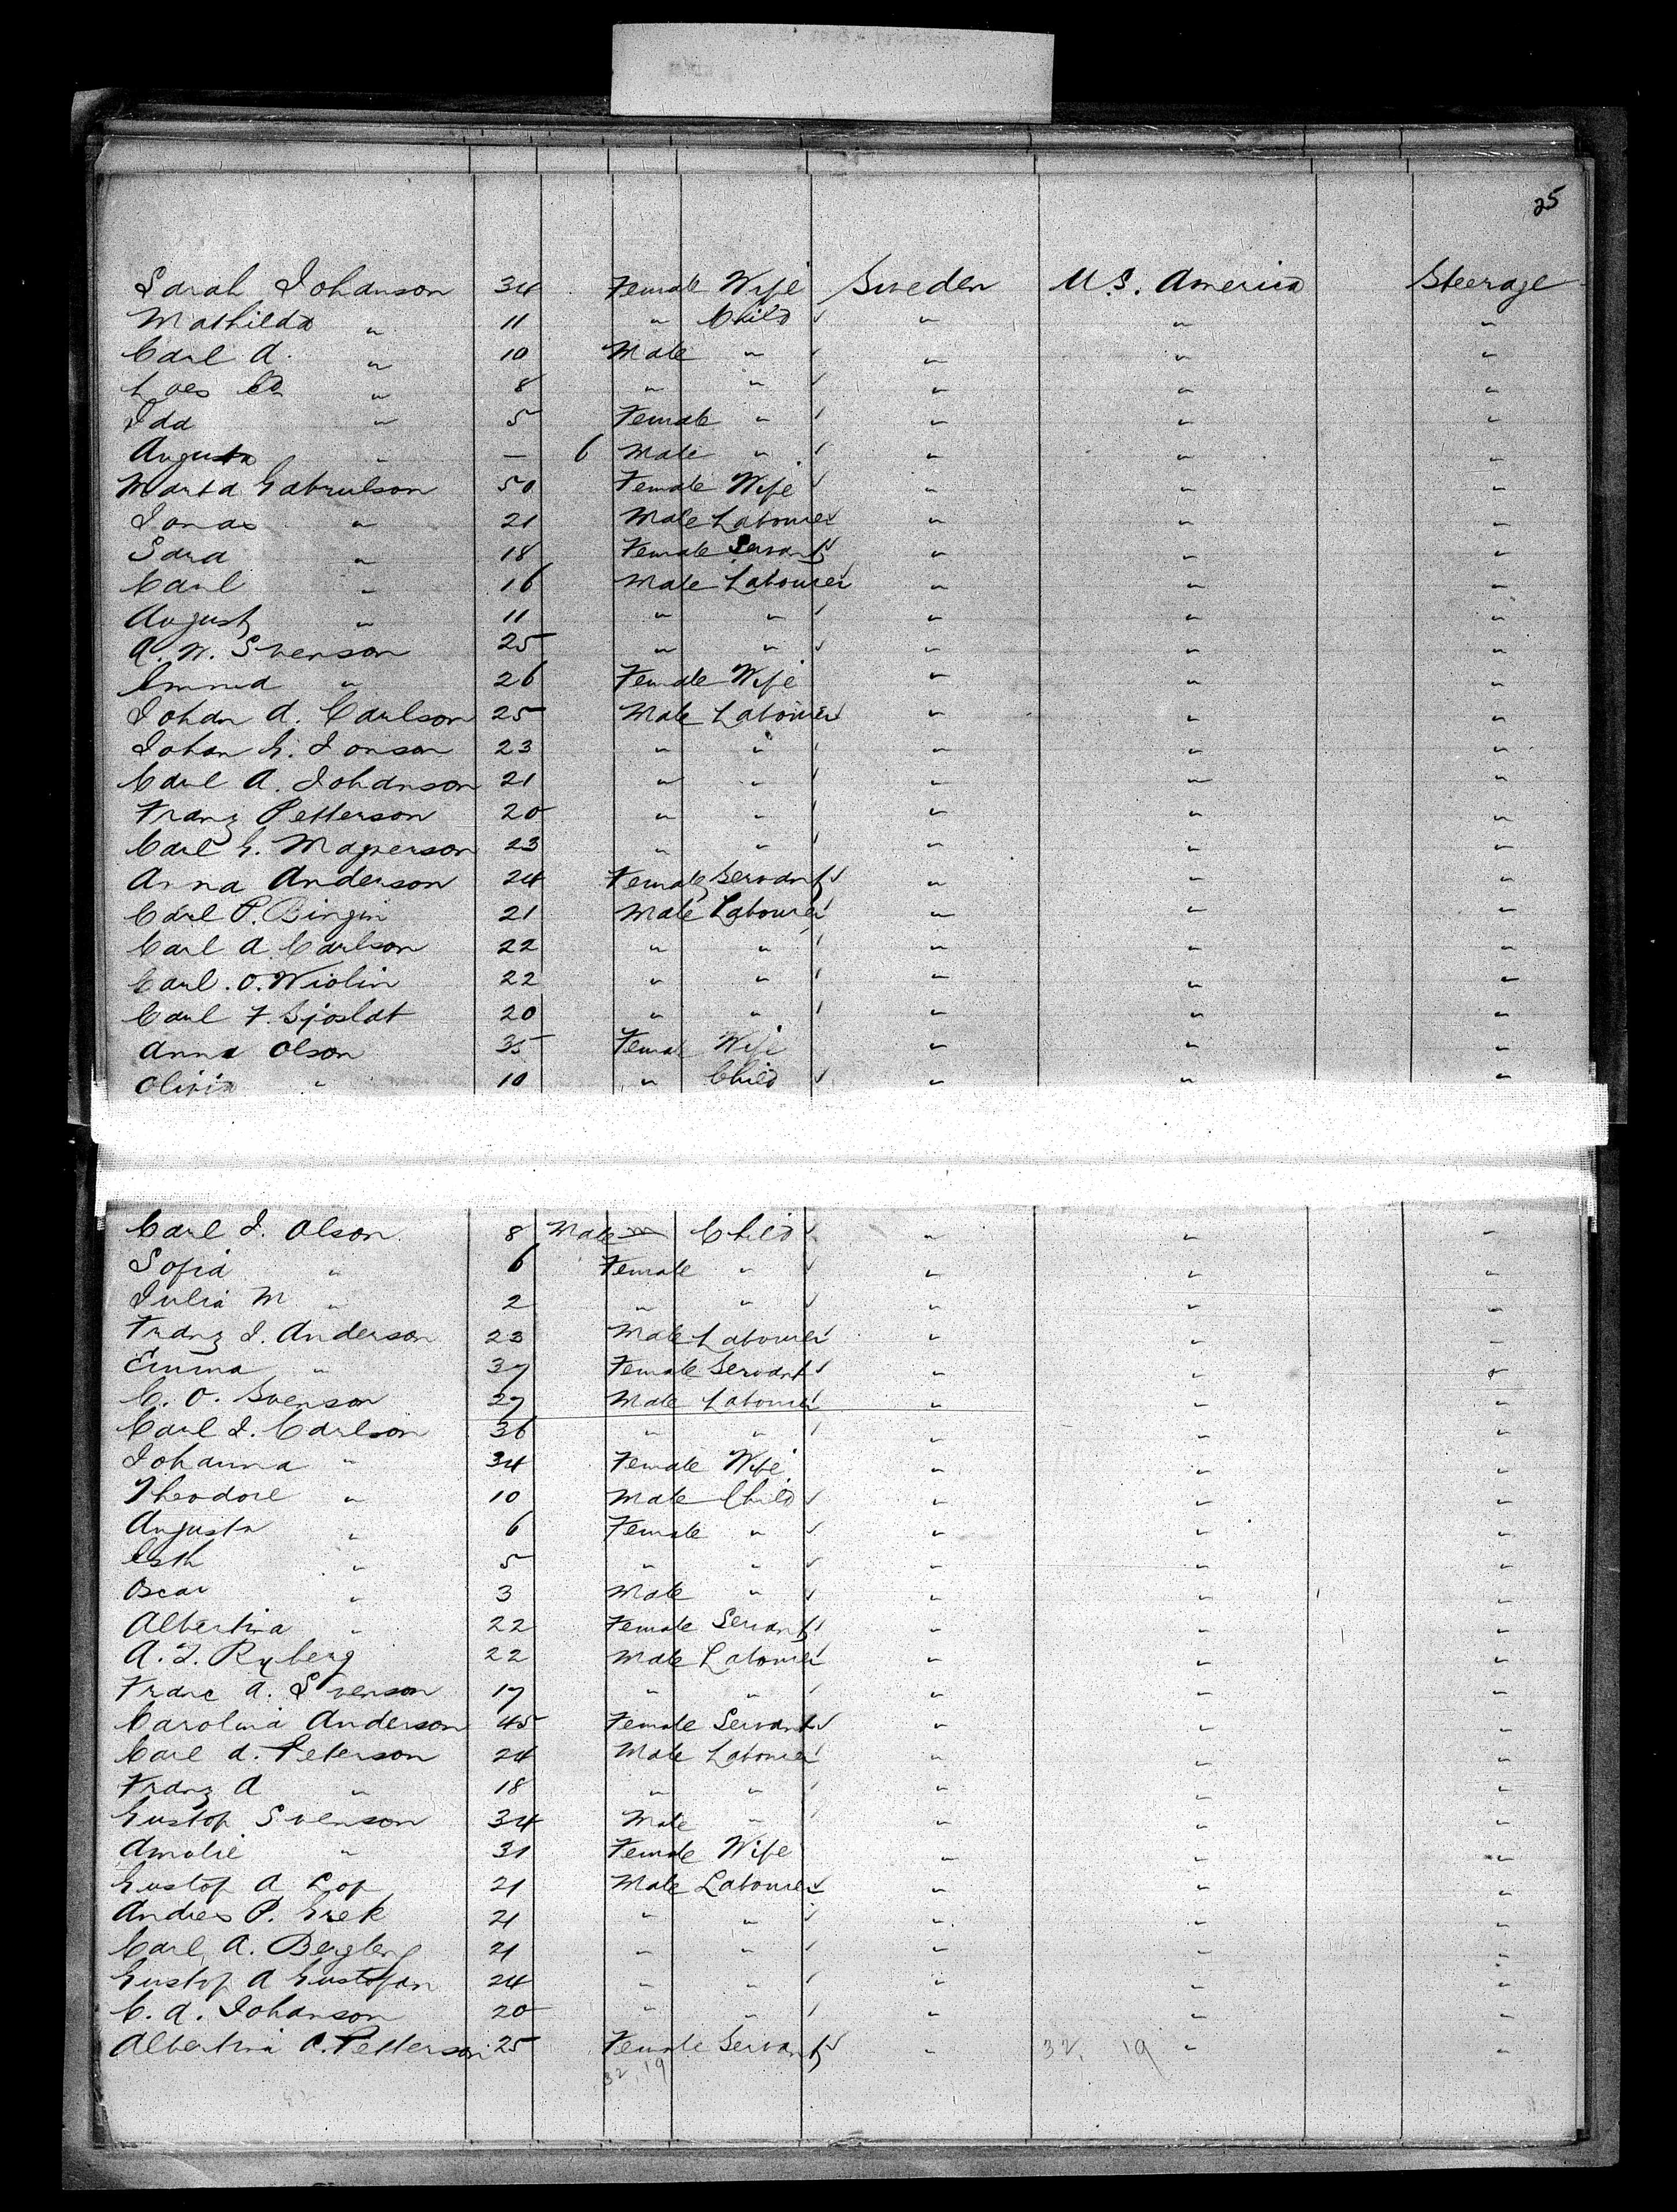 25
Sarah Johanson 34 Female Wife Sweden U.S. America Steerage
Mathilda " 11 " Child " " "
Carl A. " 10 Male " " " "
" 8 " " " " "
Ida " 5 Female " " " "
Augusta " — 6 Male " " " "
Marta Gabrielson 50 Female Wife " " "
Jonas " 21 Male Labourer " " "
Sara " 18 Female Servant " " "
Carl " 16 Male Labourer " " "
August " 11 " " " " "
A. W. Svenson 25 " " " " "
Emma " 26 Female Wife " " "
Johan A. Carlson 25 Male Labourer " " "
Johan G. Jonson 23 " " " " "
Carl A. Johanson 21 " " " " "
Franz Petterson 20 " " " " "
Carl G. Magnerson 23 " " " " "
Anna Anderson 24 Female Servant " " "
Carl P. Bingin 21 Male Labourer " " "
Carl A. Carlson 22 " " " " "
Carl. O. Wiolin 22 " " " " "
Carl F. 20 " " " " "
Anna Olson 35 Female Wife " " "
Olivia " 10 " Child " " "
Carl J. Olson 8 Male Child " " "
Sofia " 6 Female " " " "
Julia M " 2 " " " " "
Franz J. Anderson 23 Male Labourer " " "
Emma " 37 Female Servant " " "
C. O. Svenson 27 Male Labourer " " "
Carl J. Carlson 36 " " " " "
Johanna " 34 Female Wife " " "
Theodore " 10 Male Child " " "
Augusta " 6 Female " " " "
Esth " 5 " " " " "
Oscar " 3 Male " " " "
Albertina " 22 Female Servant " " "
A. J. Ryberg 22 Male Labourer " " "
Franc A. Svenson 17 " " " " "
Carolina Anderson 45 Female Servant " " "
Carl A. Peterson 24 Male Labourer " " "
Franz A " 18 " " " " "
Gustof Svenson 34 Male " " " "
Amalie " 31 Female Wife " " "
Gustof A 21 Male Labourer " " "
Andres P. Grek 21 " " " " "
Carl A. Bergberg 21 " " " " "
Gustof A Gustofson 24 " " " " "
C. A. Johanson 20 " " " " "
Albertina C. Petterson 25 Female Servant " 32, 19 " "
32,19